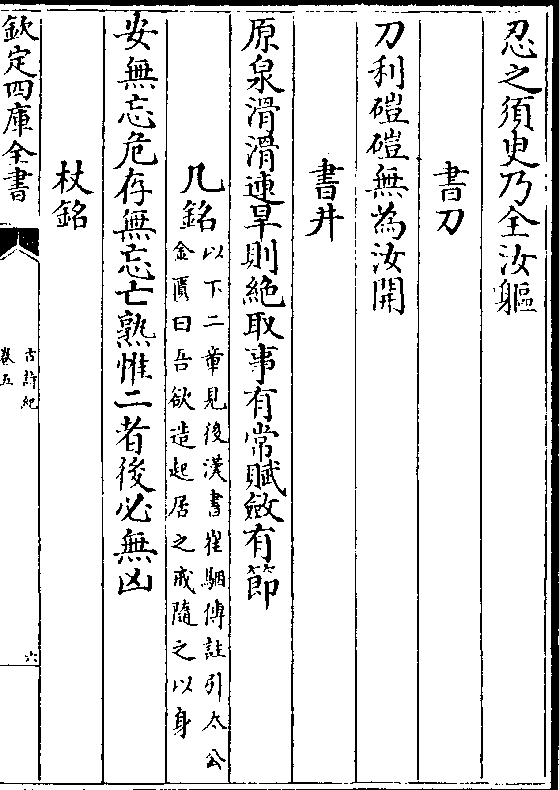 忍之須臾乃全汝軀
書刀
刀利磑磑無為汝開
書井
原泉滑滑連旱則絶取事有常賦斂有節
几銘以下二章見後漢書崔駰傳註引太公
金匱曰吾欲造起居之戒隨之以身
安無忘危存無忘亡熟惟二者後必無凶
杖銘
欽定四庫全書
古詩紀
卷五
六